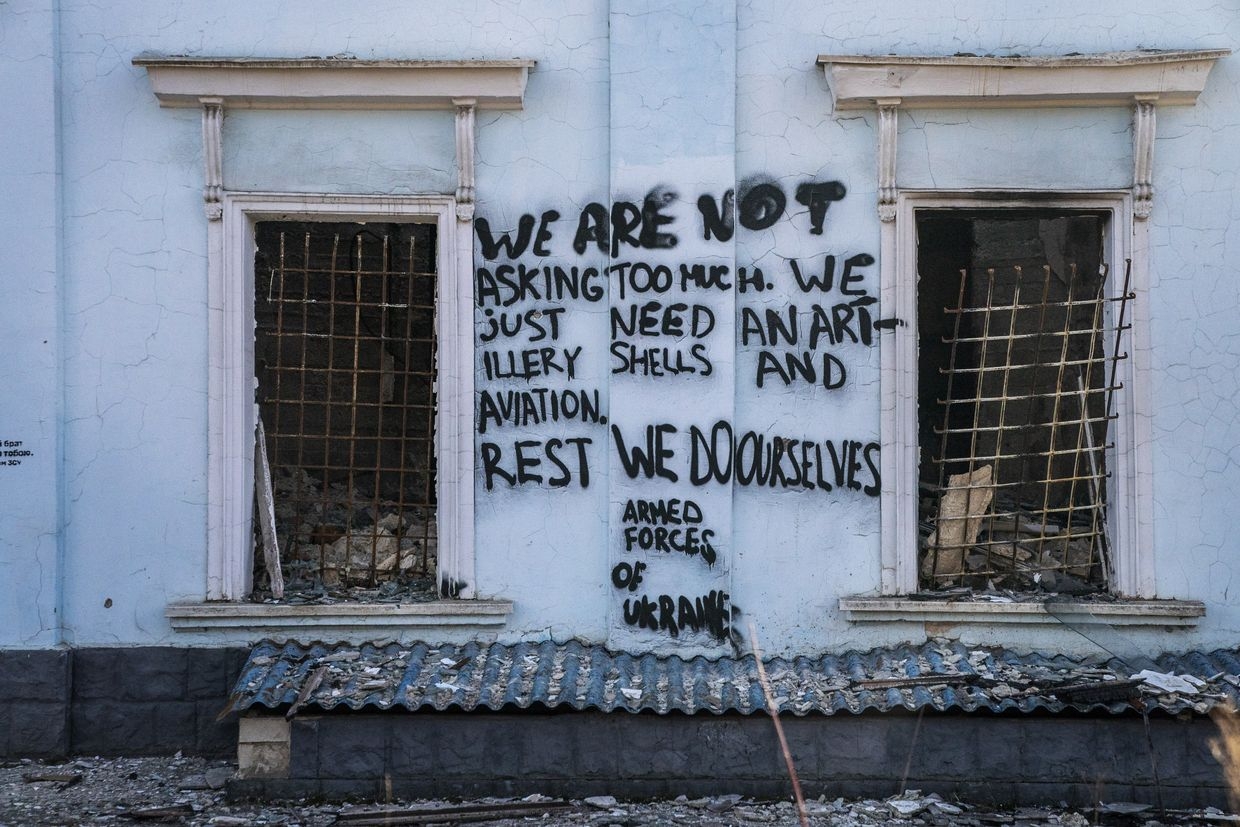 й брат
тобою.
ЗСУ
WE ARE NOT
ASKING TOO MUCH. WE
JUST NEED AN ART-
ILLERY SHELLS AND
AVIATION.
REST WE DO OURSELVES
ARMED
FORCES
OF
UKRAINE